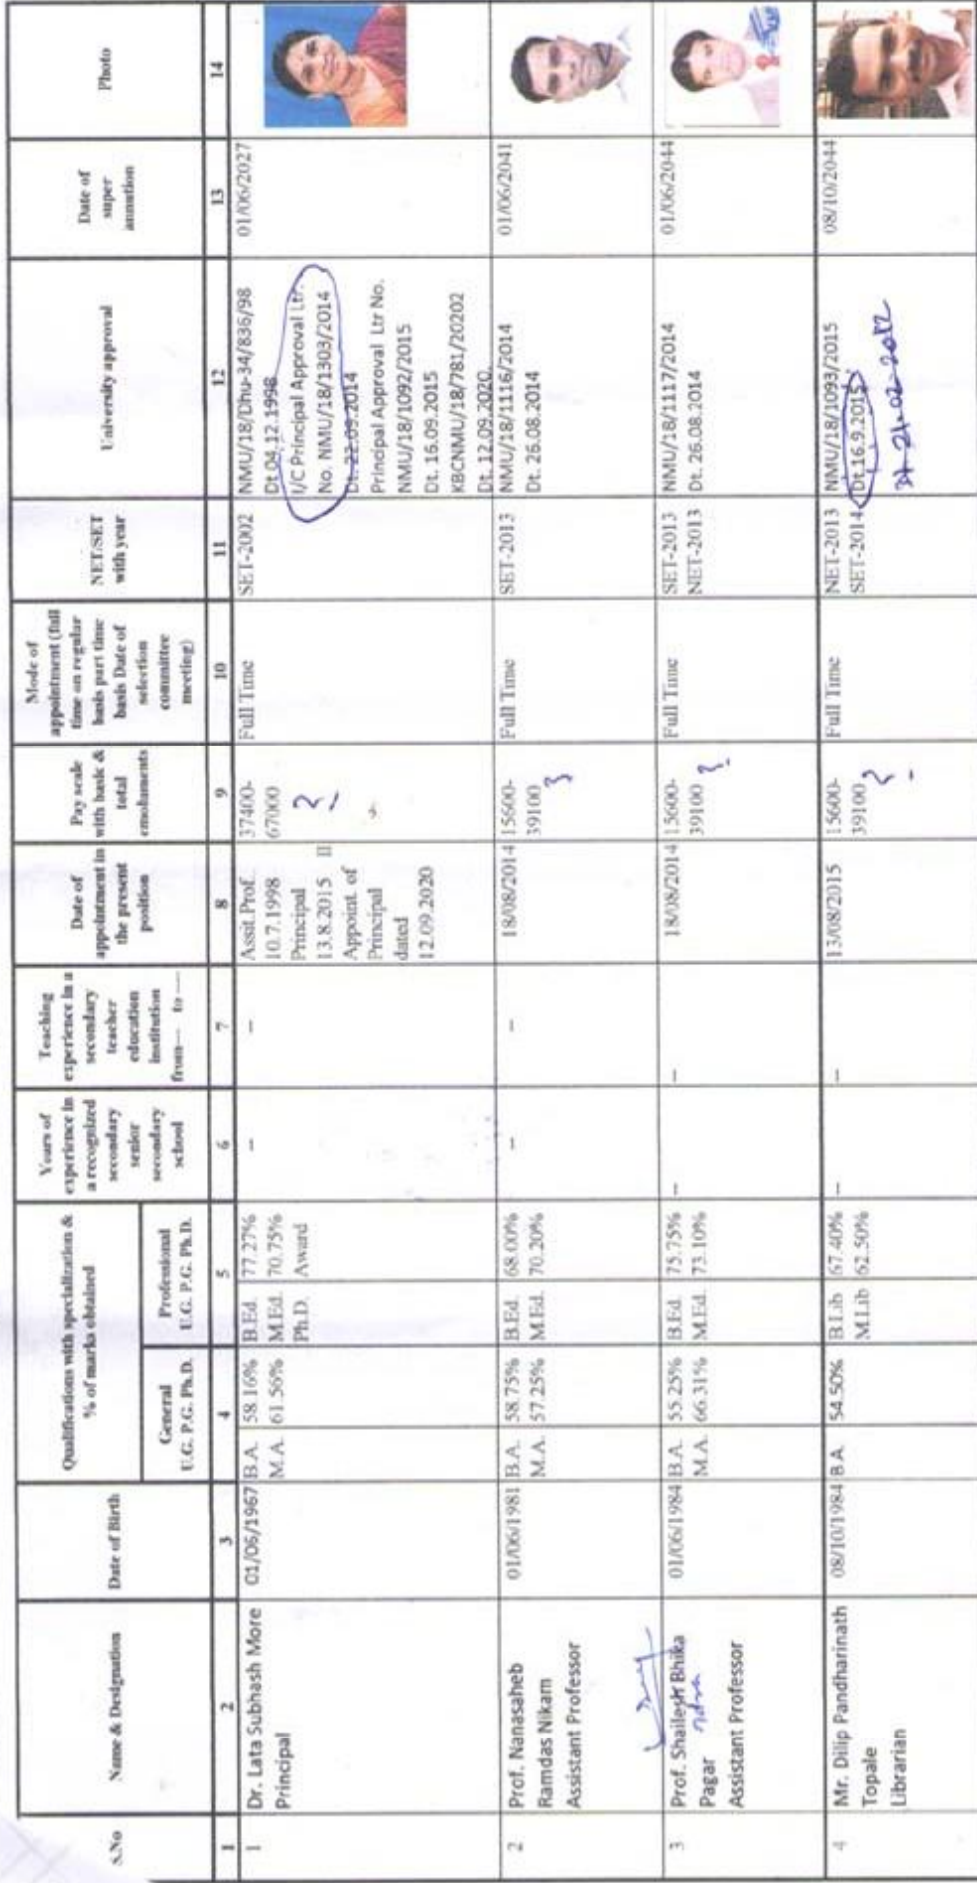 S.No
Name & Designation
Date of Birth
Qualifications with specialization &
% of marks obtained
General
U.G. P.G. Ph.D.
Professional
U.G. P.G. Ph.D.
Years of
experience in
a recognized
secondary
senior
secondary
school
Teaching
experience in a
secondary
teacher
education
institution
from— to —
Date of
appointment in
the present
position
Pay scale
with basic &
total
emoluments
Mode of
appointment (full
time on regular
basis part time
basis Date of
selection
committee
meeting)
NET/SET
with year
University approval
Date of
super
annution
Photo
1 2 3 4 5 6 7 8 9 10 11 12 13 14
1
Dr. Lata Subhash More
Principal
01/06/1967
B.A. 58.16%
M.A. 61.56%
B.Ed. 77.27%
M.Ed. 70.75%
Ph.D. Award
--
--
Assit.Prof.
10.7.1998
Principal
13.8.2015 II
Appoint. of
Principal
dated
12.09.2020
37400-
67000
?
Full Time
SET-2002
NMU/18/Dhu-34/836/98
Dt.04.12.1998
I/C Principal Approval Ltr.
No. NMU/18/1303/2014
Dt. 22.09.2014
Principal Approval Ltr No.
NMU/18/1092/2015
Dt. 16.09.2015
KBCNMU/18/781/20202
Dt. 12.09.2020
01/06/2027
2
Prof. Nanasaheb
Ramdas Nikam
Assistant Professor
01/06/1981
B.A. 58.75%
M.A. 57.25%
B.Ed. 68.00%
M.Ed. 70.20%
--
--
18/08/2014
15600-
39100
Full Time
SET-2013
NMU/18/1116/2014
Dt. 26.08.2014
01/06/2041
3
Prof. Shailesh Bhika
Pagar
Assistant Professor
01/06/1984
B.A. 55.25%
M.A. 66.31%
B.Ed. 75.75%
M.Ed. 73.10%
--
--
18/08/2014
15600-
39100
?
Full Time
SET-2013
NET-2013
NMU/18/1117/2014
Dt. 26.08.2014
01/06/2044
4
Mr. Dilip Pandharinath
Topale
Librarian
08/10/1984
B.A. 54.50%
B.Lib 67.40%
M.Lib 62.50%
--
--
13/08/2015
15600-
39100
?
Full Time
NET-2013
SET-2014
NMU/18/1093/2015
Dt.16.9.2015
08/10/2044